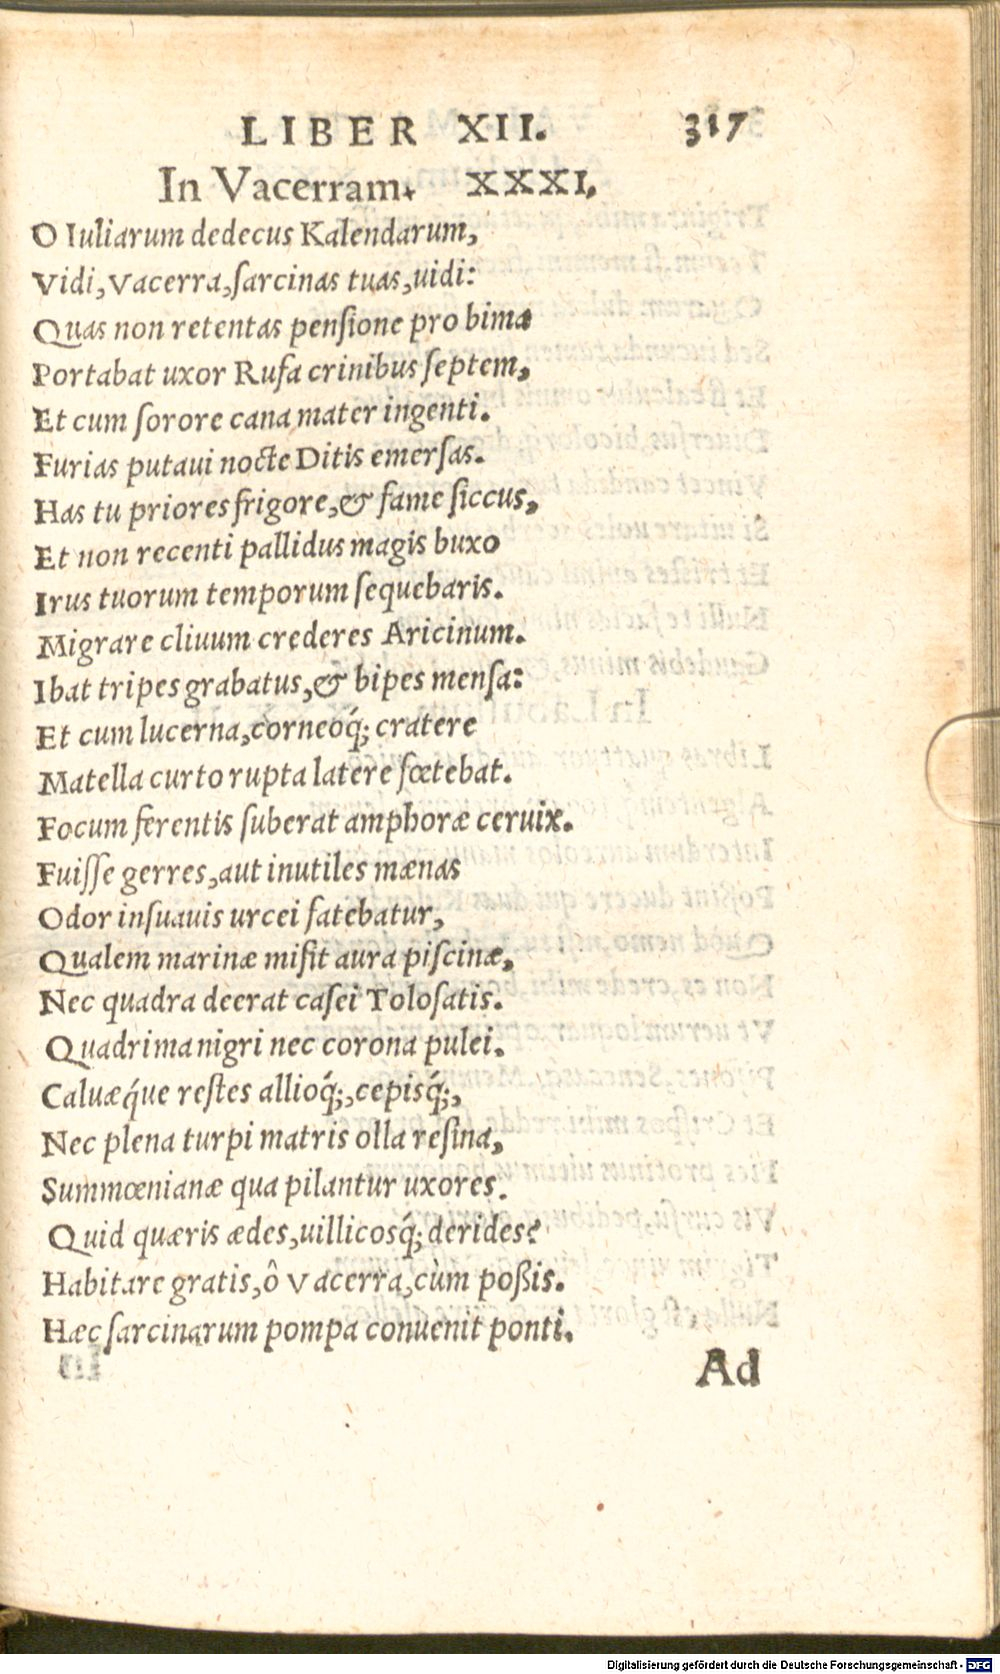 LIBER XII. 317
In Vacerram. XXXI.
O Iuliarum dedecus Kalendarum,
Vidi, Vacerra, ſarcinas tuas, uidi:
Quas non retentas penſione pro bima
Portabat uxor Rufa crinibus ſeptem,
Et cum ſorore cana mater ingenti.
Furias putaui nocte Ditis emerſas.
Has tu priores frigore, & fame ſiccus,
Et non recenti pallidus magis buxo
Irus tuorum temporum ſequebaris.
Migrare cliuum crederes Aricinum.
Ibat tripes grabatus, & bipes menſa:
Et cum lucerna, corneoq́; cratere
Matella curto rupta latere fœtebat.
Focum ferentis ſuberat amphoræ ceruix.
Fuiſſe gerres, aut inutiles mænas
Odor inſuauis urcei fatebatur,
Qualem marinæ miſit aura piſcinæ,
Nec quadra deerat caſei Toloſatis.
Quadrima nigri nec corona pulei.
Caluæq́ue reſtes allioq́;, cepisq́;,
Nec plena turpi matris olla reſina,
Summœnianæ qua pilantur uxores.
Quid quæris ædes, uillicosq́; derides?
Habitare gratis, ô Vacerra, cùm poßis.
Hæc ſarcinarum pompa conuenit ponti.
Ad
Digitalisierung gefördert durch die Deutsche Forschungsgemeinschaft - DFG